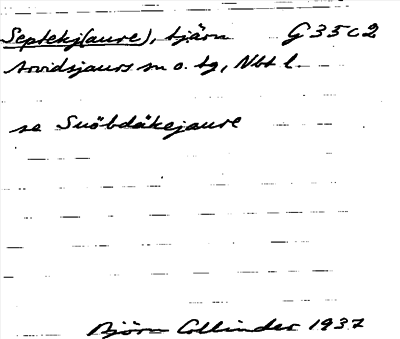 Septekj(aure), tjärn G35c2
Arvidsjaurs sn o. tg, Nbt l.
se Suöbdäkejaure
Björn Collinder 1937